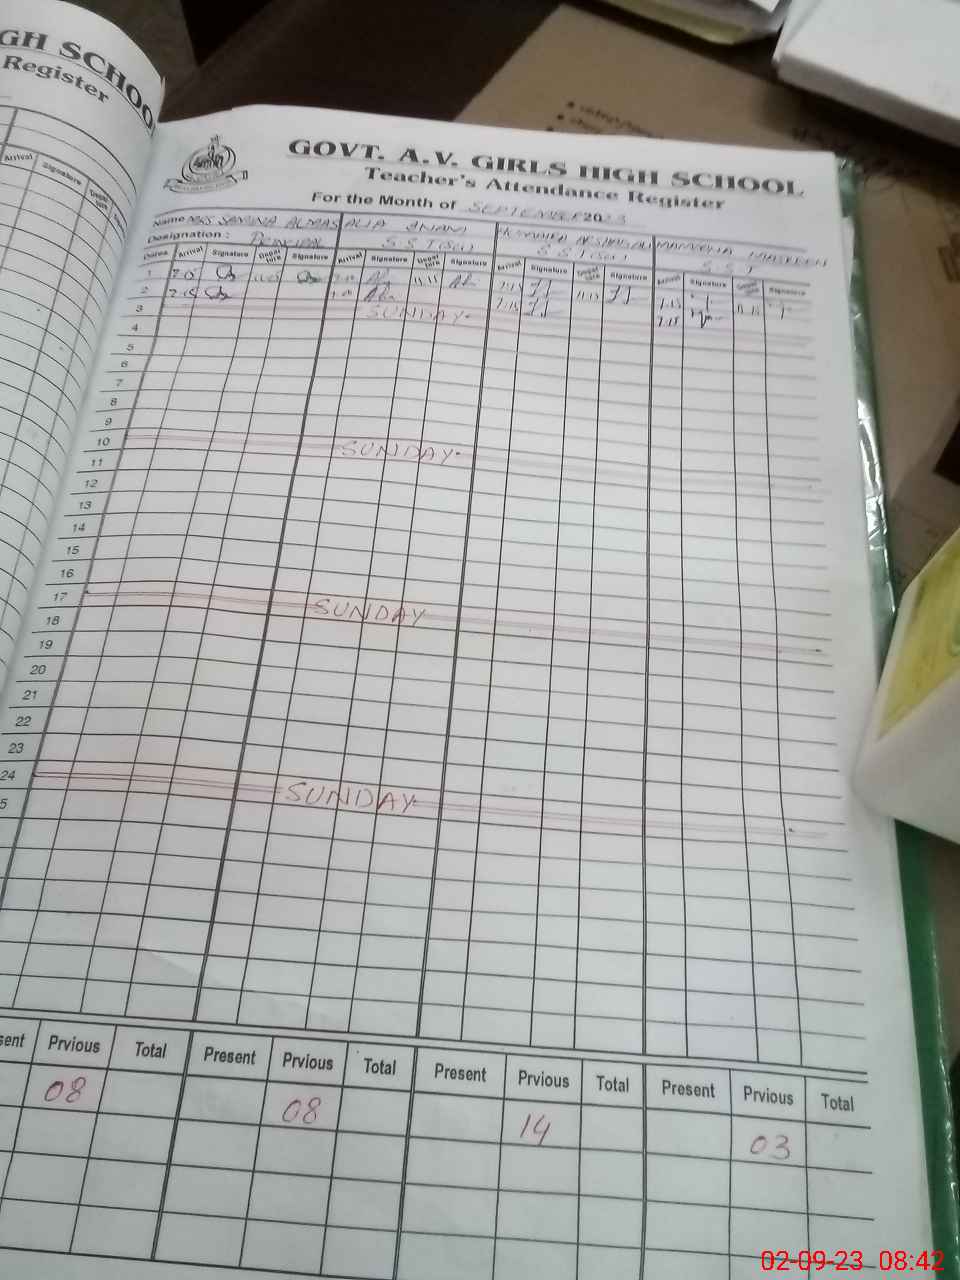 GH SCHOO
Register
Arrival Signature
GOVT. A.V. GIRLS HIGH SCHOOL
Teacher's Attendance Register
For the Month of SEPTEMBER 2023
Name MRS SAMINA ALMAS ALIA
Designation : PRINCIPAL S S T (SC) S S T (SC) S S T
Dates Arrival Signature Depar ture Signature Arrival Signature Depar ture Signature Arrival Signature Depar ture Signature Arrival Signature Depar ture Signature
1 7:15 11:15
2 7:15 7:15 7:15
3 SUNDAY
4
5
6
7
8
9
10 SUNDAY
11
12
13
14
15
16
17 SUNDAY
18
19
20
21
22
23
24 SUNDAY
5
sent Prvious Total Present Prvious Total Present Prvious Total Present Prvious Total
08 08 14 03
02-09-23 08:42